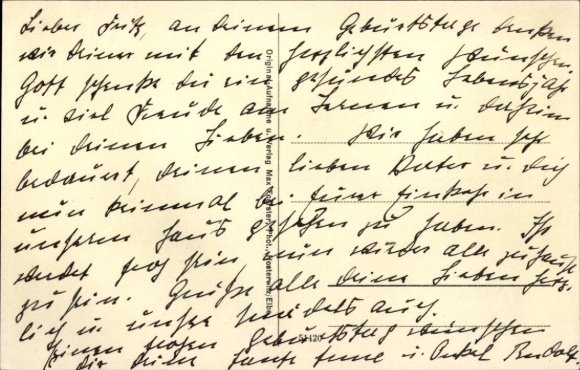 Lieber Fritz, an deinem Geburtstage denken
wir deiner mit den herzlichsten Wünschen.
Gott schenke dir ein gesundes Lebensjahr
u. viel Freude am Lernen u. daheim
bei deinen Lieben. Wir haben sehr
bedauert, deinen lieben Vater u. dich
nun keinmal bei eurer Einkehr in
unserem Haus gesehen zu haben. Ihr
werdet froh sein, nun wieder alle zuhause
zu sein. Grüße alle deine Lieben herz-
lich u. unsre auch.
Einen frohen Geburtstag wünschen
dir deine Tante u. Onkel Rudolf.
Original-Aufnahme u. Verlag Max Phot., Klosterwitz/Elbe